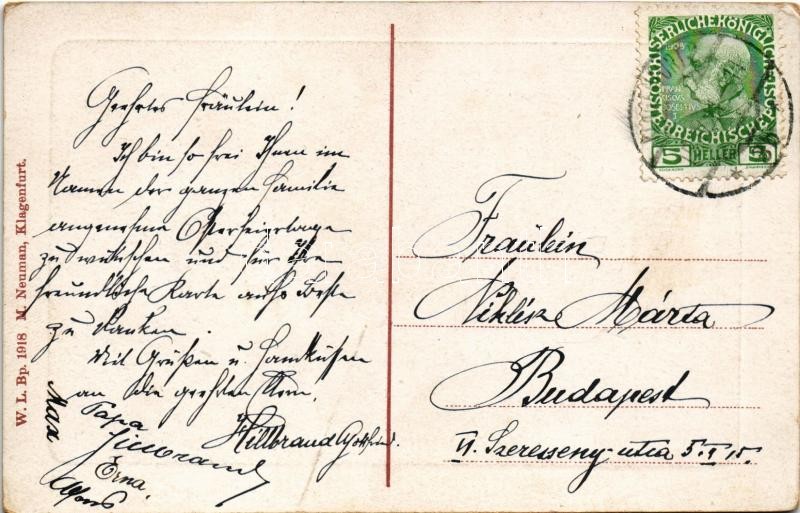 Geehrtes Fräulein!
Ich bin so frei Ihnen im
Namen der ganzen Familie
angenehme Osterfeiertage
zu wünschen und für Ihre
freundliche Karte aufs Beste
zu danken.
Mit Grüßen u. Handküssen
an die geehrten
Hillbrand Gottfried.
Max
Papa
Hillbrand
Erna.
W. L. Bp. 1918 M. Neuman, Klagenfurt.
1908
KAISERLICHEKÖNIGLICHE
ÖSTERREICHISCHE
5 HELLER 5
Fräulein
Niklík Márta
Budapest
VI. Szerecseny-utca